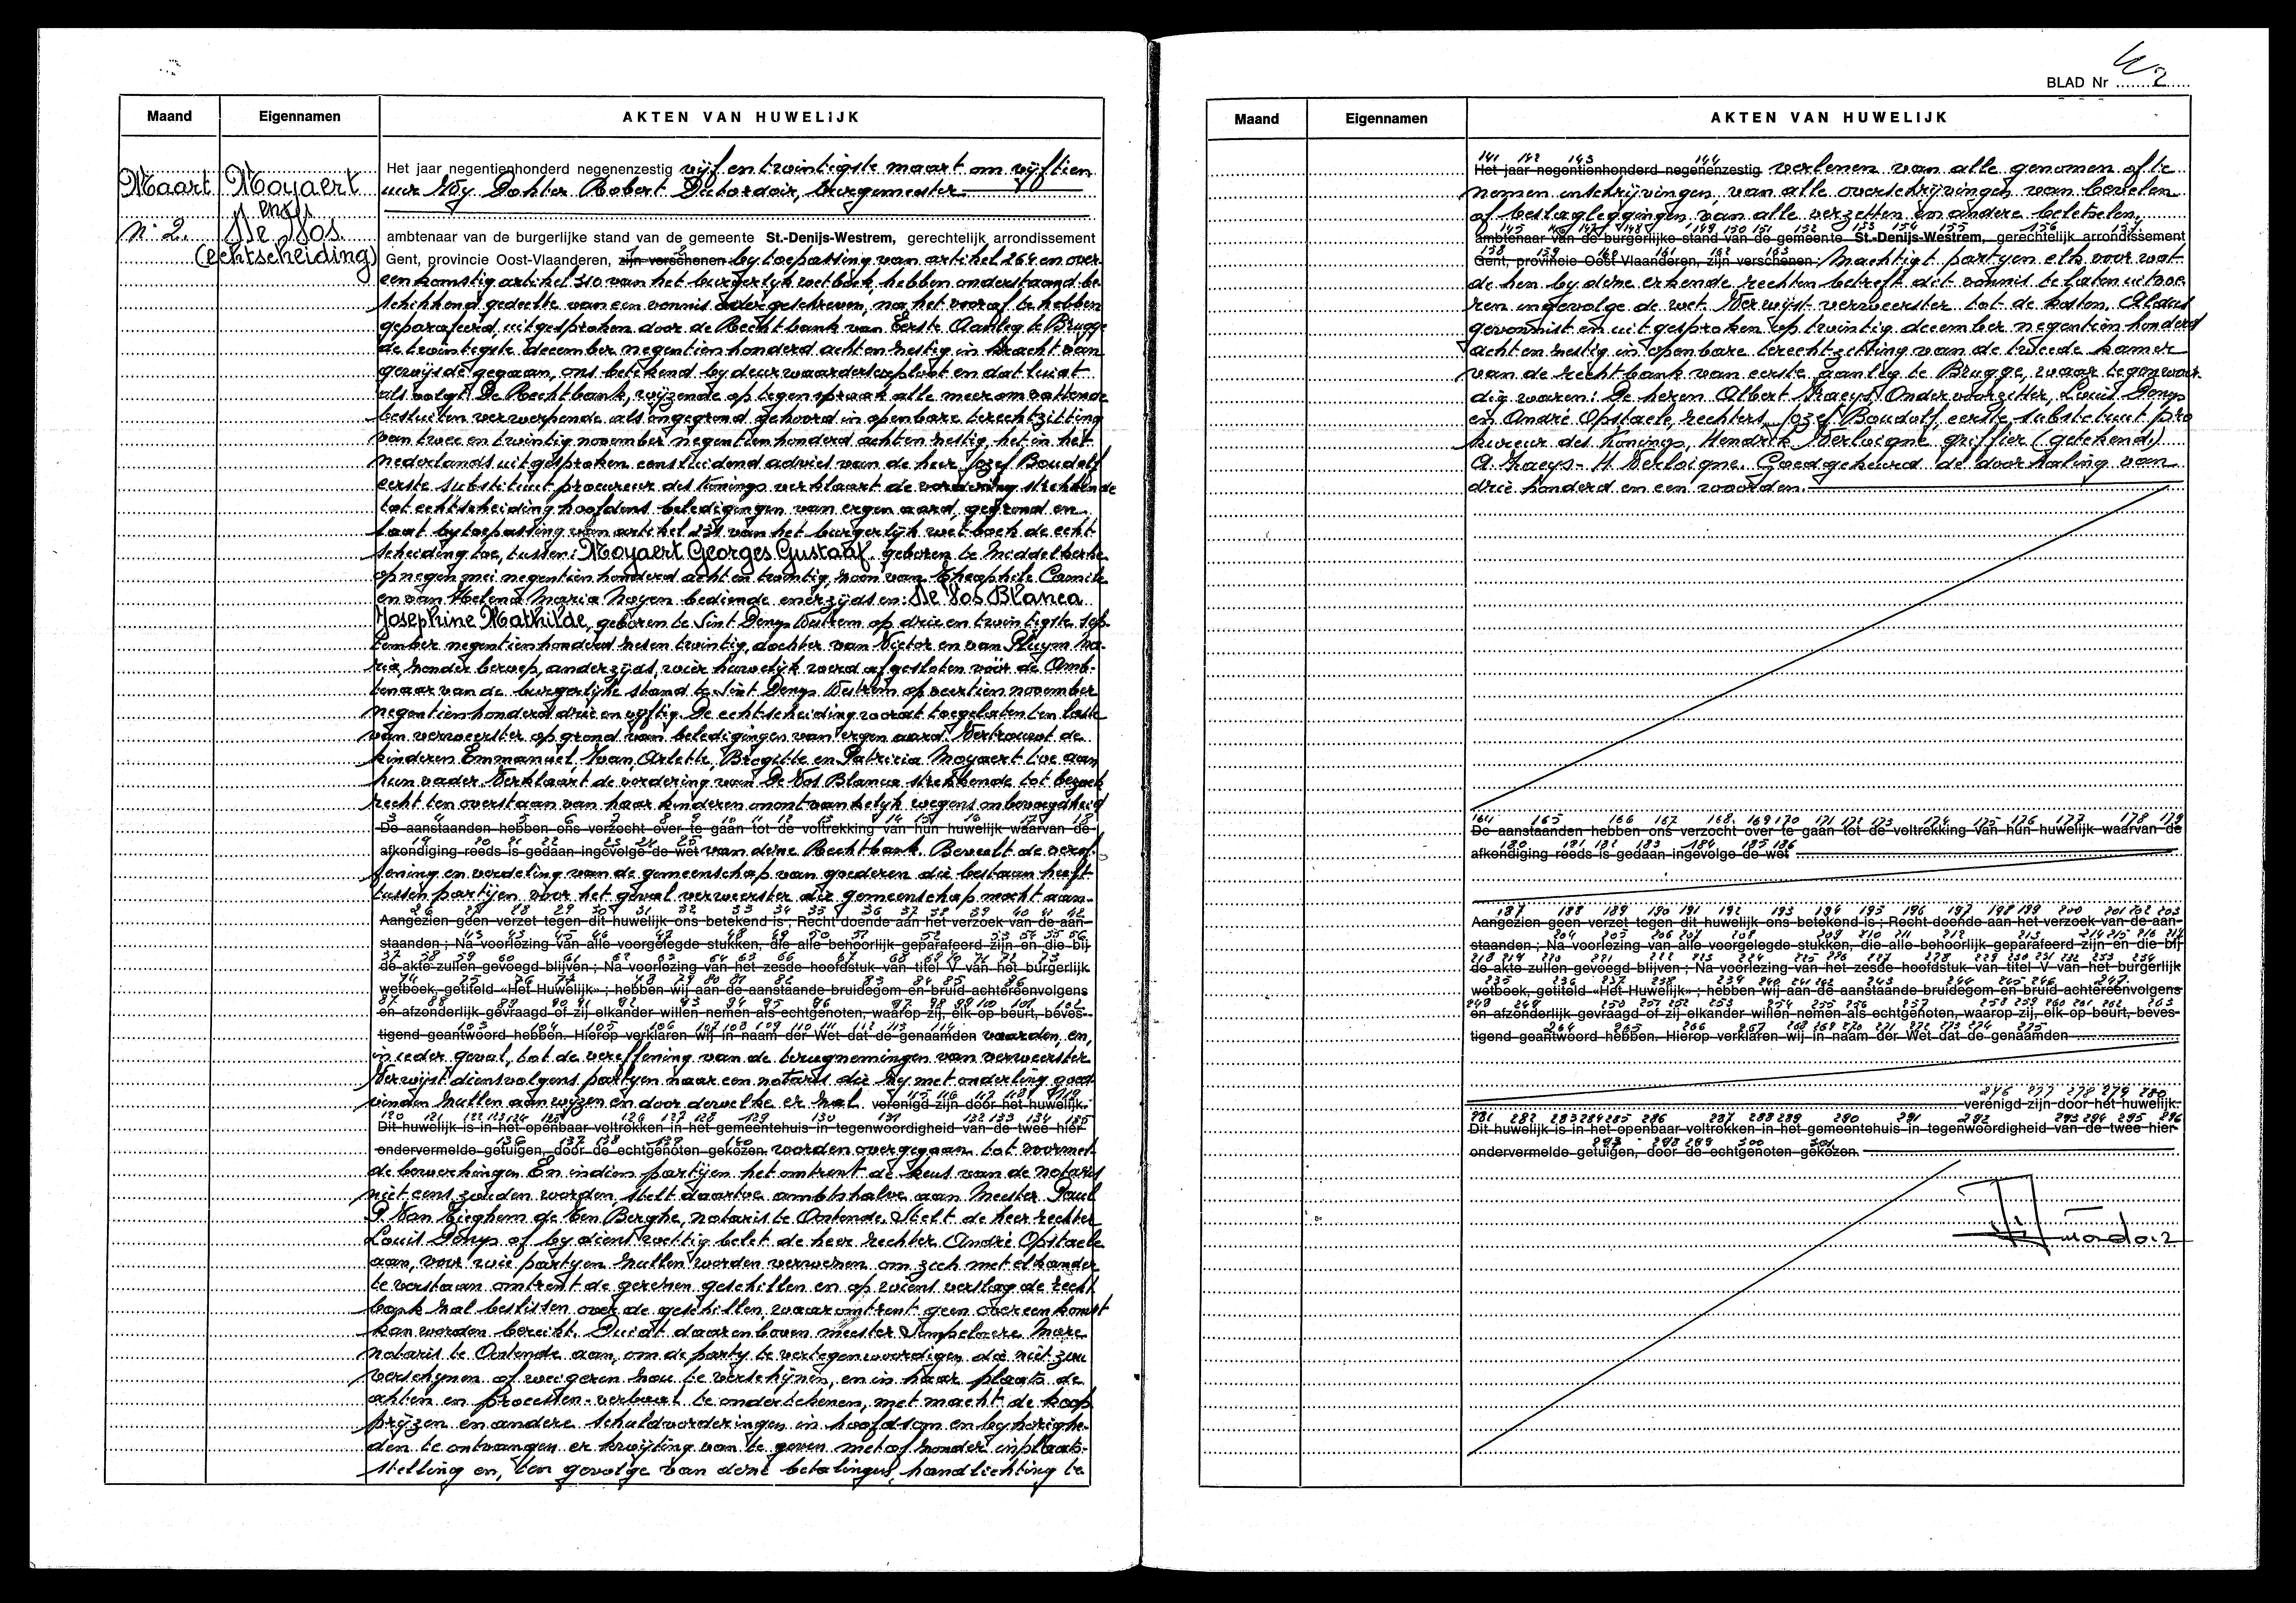 Maand
Eigennamen
AKTEN VAN HUWELIJK
Maart
Moyaert
en
De Vos.
n° 2.
(echtscheiding)
Het jaar negentienhonderd negenenzestig vijf en twintigste maart om vijftien
uur Wij Dokter Robert Dutordoir, burgemeester
ambtenaar van de burgerlijke stand van de gemeente St.-Denijs-Westrem, gerechtelijk arrondissement
Gent, provincie Oost-Vlaanderen, zijn verschenen: bij toepassing van artikel 264 en over
eenkomstig artikel 310 van het burgerlijk wetboek, hebben onderstaand be-
schikkend gedeelte van een vonnis overgeschreven, na het vooraf te hebben
geparafeerd, uitgesproken door de Rechtbank van Eerste Aanleg te Brugge
de twintigste december negentienhonderd achtenzestig in kracht van
gewijsde gegaan, ons betekend bij deurwaardersexploot en dat luidt
als volgt: De Rechtbank, wijzende op tegenspraak alle meeromvattende
besluiten verwerpende als ongegrond gehoord in openbare terechtzitting
van twee en twintig november negentienhonderd achtenzestig, het in het
nederlands uitgesproken eensluidend advies van de heer Jozef Boudolf
eerste substituut procureur des Konings verklaart de vordering strekkende
tot echtscheiding hoofdens beledigingen van ergen aard, gegrond en
laat bij toepassing van artikel 231 van het burgerlijk wetboek de echt-
scheiding toe, tussen: Moyaert Georges Gustaaf geboren te Middelkerke
op negen mei negentienhonderd acht en twintig, zoon van Theophile Camile
en van Helena Maria Noyen bediende enerzijds en: De Vos Blanca
Josephine Mathilde, geboren te Sint Denijs Westrem op drie en twintigste sep-
tember negentienhonderd zesen twintig, dochter van Victor en van Pluym Ma-
ria, zonder beroep, anderzijds, wier huwelijk werd afgesloten vóór de Amb-
tenaar van de burgerlijke stand te Sint Denys Westrem op veertien november
negentienhonderd drie en vijftig. De echtscheiding wordt toegelaten ten laste
van verweerster op grond van beledigingen van ergen aard. Vertrouwt de
kinderen Emmanuel, Ivan, Arlette, Brigitte en Patrizia Moyaert toe aan
hun vader. Verklaart de vordering van De Vos Blanca strekkende tot bezoek
recht ten overstaan van haar kinderen onontvankelijk wegens onbevoegdheid
3 4 5 6 7 8 9 10 11 12 13 14 15 16 17 18
De aanstaanden hebben ons verzocht over te gaan tot de voltrekking van hun huwelijk waarvan de
19 20 21 22 23 24 25
afkondiging reeds is gedaan ingevolge de wet van deze Rechtbank. Beveelt de veref-
fening en verdeling van de gemeenschap van goederen die bestaan heeft
tussen partijen voor het geval verweerster die gemeenschap mocht aan-
26 27 28 29 30 31 32 33 34 35 36 37 38 39 40 41 42
Aangezien geen verzet tegen dit huwelijk ons betekend is; Recht doende aan het verzoek van de aan-
staanden; Na voorlezing van alle voorgelegde stukken, die alle behoorlijk geparafeerd zijn en die bij
de akte zullen gevoegd blijven; Na voorlezing van het zesde hoofdstuk van titel V van het burgerlijk
wetboek, getiteld «Het Huwelijk»; hebben wij aan de aanstaande bruidegom en bruid achtereenvolgens
en afzonderlijk gevraagd of zij elkander willen nemen als echtgenoten, waarop zij, elk op beurt, beves-
103 104 105 106 107 108 109 110 111 112 113 114
tigend geantwoord hebben. Hierop verklaren wij in naam der Wet dat de genaamden vaarden, en,
in ieder geval, tot de vereffening van de terugnemingen van verweerster
Verwijst diensvolgens partijen naar een notaris die zij met onderling goed-
vinden zullen aanwijzen en door dewelke er zal verenigd zijn door het huwelijk.
Dit huwelijk is in het openbaar voltrokken in het gemeentehuis in tegenwoordigheid van de twee hier-
136 137 138 139 140
ondervermelde getuigen, door de echtgenoten gekozen. worden overgegaan tot voormel-
de bewerkingen. En indien partijen het omtrent de keus van de notaris
niet eens zouden worden, stelt daartoe ambtshalve aan Meester Paul
P. Van Tieghem de Ten Berghe, notaris te Oostende. Stelt de heer rechter
Louis Denys of bij dienstwettig belet de heer rechter André Opstaele
aan, voor wie partyen zullen worden verwezen om zich met elkander
te verstaan omtrent de gerezen geschillen en op wiens verslag de recht
bank zal beslissen over de geschillen waaromtrent geen overeenkomst
kan worden bereikt. Duidt daarenboven meester Simpelaere Marc
notaris te Oostende aan, om de party te vertegenwoordigen die niet zou
verschijnen of weigeren zou te verschijnen, en in haar plaats de
akten en processen-verbaal te ondertekenen, met macht de koop
prijzen en andere schuldvorderingen in hoofdsom en bijhorighe-
den te ontvangen er kwijting van te geven met of zonder inplaats-
stelling en, ten gevolge van deze betalingen, handlichting te
BLAD Nr 2
Maand
Eigennamen
AKTEN VAN HUWELIJK
141 142 143 144
Het jaar negentienhonderd negenenzestig verlenen van alle genomen of te
nemen inschrijvingen, van alle overschrijvingen van bevelen
of beslagleggingen van alle verzetten en andere beletselen.
ambtenaar van de burgerlijke stand van de gemeente St.-Denijs-Westrem, gerechtelijk arrondissement
Gent, provincie Oost-Vlaanderen, zijn verschenen: Machtigt partyen elk voor wat
de hen bij deze erkende rechten betreft dit vonnis te laten uitvoe-
ren ingevolge de wet. Verwijst verweerster tot de kosten. Aldus
gevonnist en uitgesproken op twintig december negentienhonderd
achtenzestig in openbare terechtzitting van de tweede kamer
van de rechtbank van eerste aanleg te Brugge, waar tegenwoor-
dig waren: De heren Albert Kraeys, Ondervoorzitter, Louis Denys
en André Opstaele, rechters, Jozef Boudolf, eerste substituut pro
kureur des Konings, Hendrik Verloigne griffier (getekend)
A. Kraeys - H. Verloigne. Goedgekeurd de doorhaling van
drie honderd en een woorden.
De aanstaanden hebben ons verzocht over te gaan tot de voltrekking van hun huwelijk waarvan de
180 181 182 183 184 185 186
afkondiging reeds is gedaan ingevolge de wet
187 188 189 190 191 192 193 194 195 196 197 198 199 200 201 202 203
Aangezien geen verzet tegen dit huwelijk ons betekend is; Recht doende aan het verzoek van de aan-
staanden; Na voorlezing van alle voorgelegde stukken, die alle behoorlijk geparafeerd zijn en die bij
de akte zullen gevoegd blijven; Na voorlezing van het zesde hoofdstuk van titel V van het burgerlijk
wetboek, getiteld «Het Huwelijk»; hebben wij aan de aanstaande bruidegom en bruid achtereenvolgens
en afzonderlijk gevraagd of zij elkander willen nemen als echtgenoten, waarop zij, elk op beurt, beves-
tigend geantwoord hebben. Hierop verklaren wij in naam der Wet dat de genaamden
276 277 278 279 280
verenigd zijn door het huwelijk.
Dit huwelijk is in het openbaar voltrokken in het gemeentehuis in tegenwoordigheid van de twee hier-
297 298 299 300 301
ondervermelde getuigen, door de echtgenoten gekozen.